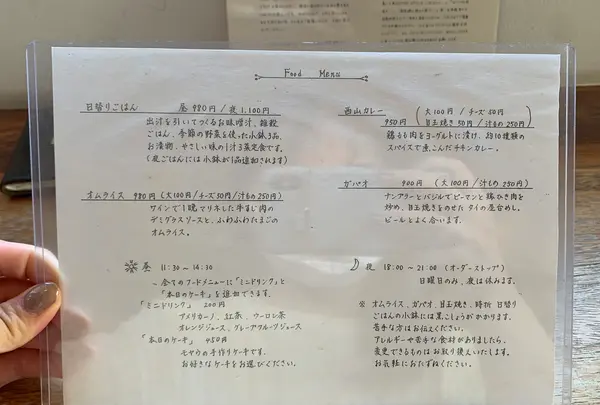 Food Menu
日替りごはん 昼 980円 / 夜 1,100円
出汁を引いてつくるお味噌汁、雑穀
ごはん、季節の野菜を使った小鉢3品、
お漬物。やさしい味の1汁3菜定食です。
(夜ごはんには小鉢が1品追加されます)
オムライス 980円 (大100円/チーズ50円/汁もの250円)
ワインで1晩マリネした牛すじ肉の
デミグラスソースと、ふわふわたまごの
オムライス。
昼 11:30 ~ 14:30
~ 全てのフードメニューに「ミニドリンク」と
「本日のケーキ」を追加できます。
「ミニドリンク」 200円
アメリカーノ、紅茶、ウーロン茶
オレンジジュース、グレープフルーツジュース
「本日のケーキ」 450円
モヤウの手作りケーキです。
お好きなケーキをお選びください。
西山カレー 950円 (大100円 / チーズ50円
目玉焼き50円 / 汁もの250円)
鶏もも肉をヨーグルトに漬け、約10種類の
スパイスで煮こんだチキンカレー。
ガパオ 900円 (大100円/汁もの250円)
ナンプラーとバジルでピーマンと鶏ひき肉を
炒め、目玉焼きをのせたタイの屋台めし。
ビールとよく合います。
夜 18:00 ~ 21:00 (オーダーストップ)
日曜日のみ、夜は休みます。
※ オムライス、ガパオ、目玉焼き、時折 日替り
ごはんの小鉢には黒こしょうがかかります。
苦手な方はお伝えください。
アレルギーや苦手な食材がありましたら、
変更できるものはお取り替えいたします。
お気軽におたずねください。